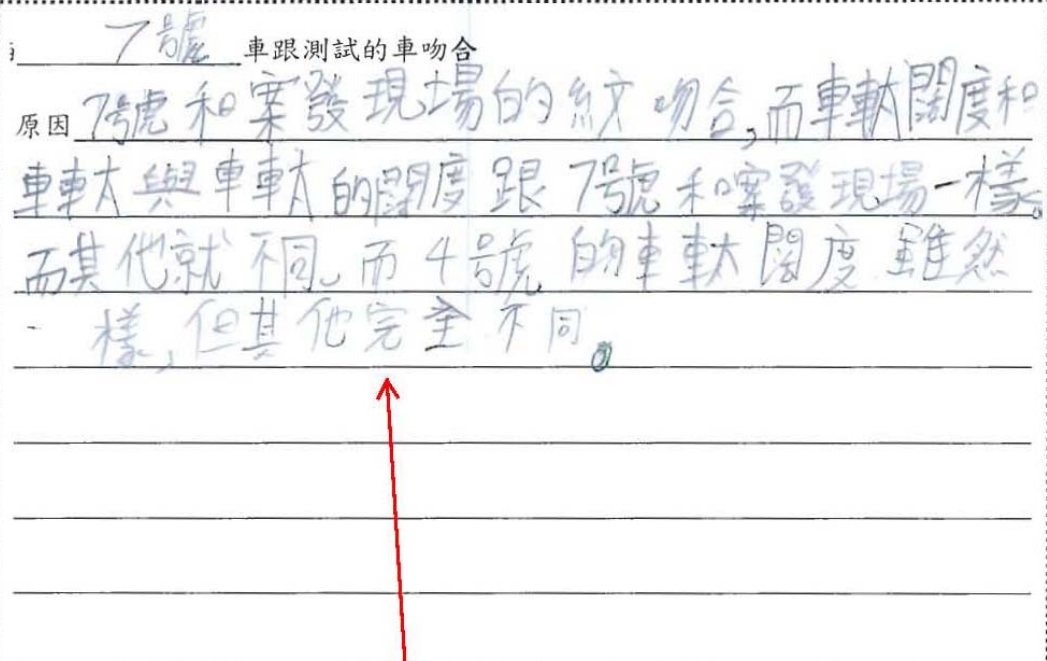 7號 車跟測試的車吻合
原因 7號和案發現場的紋吻合,而車軚闊度和
車軚與車軚的闊度跟7號和案發現場一樣。
而其他就不同。而4號的車軚闊度雖然
一樣,但其他完全不同。